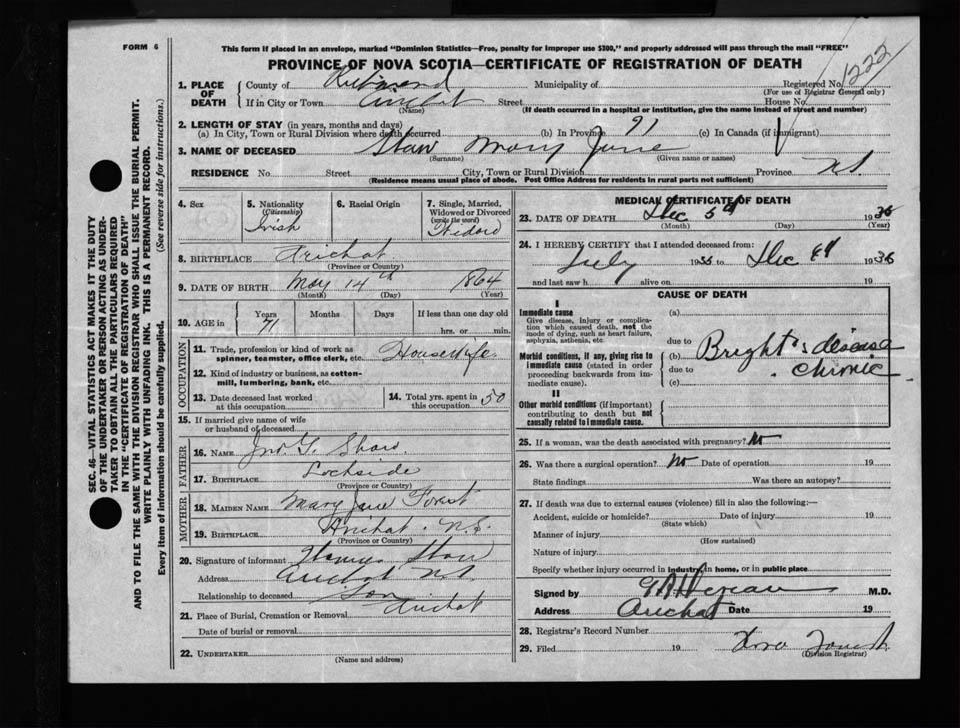 FORM 6
This form if placed in an envelope, marked "Dominion Statistics—Free, penalty for improper use $300," and properly addressed will pass through the mail "FREE"
PROVINCE OF NOVA SCOTIA—CERTIFICATE OF REGISTRATION OF DEATH
1. PLACE OF DEATH
County of Richmond Municipality of Registered No. 1222
(For use of Registrar General only)
If in City or Town Arichat Street House No.
(Name) (If death occurred in a hospital or institution, give the name instead of street and number)
2. LENGTH OF STAY (in years, months and days)
(a) In City, Town or Rural Division where death occurred (b) In Province 71 (c) In Canada (if immigrant)
3. NAME OF DECEASED Shaw Mary Jane
(Surname) (Given name or names)
RESIDENCE No. Street City, Town or Rural Division Province N.S.
(Residence means usual place of abode. Post Office Address for residents in rural parts not sufficient)
4. Sex
5. Nationality (Citizenship) Irish
6. Racial Origin
7. Single, Married, Widowed or Divorced (write the word)
8. BIRTHPLACE Arichat
(Province or Country)
9. DATE OF BIRTH May 14th 1864
(Month) (Day) (Year)
10. AGE in Years 71 Months Days If less than one day old hrs. or min.
OCCUPATION
11. Trade, profession or kind of work as spinner, teamster, office clerk, etc. Housewife
12. Kind of industry or business, as cotton-mill, lumbering, bank, etc.
13. Date deceased last worked at this occupation
14. Total yrs. spent in this occupation 50
15. If married give name of wife or husband of deceased
FATHER
16. NAME Jno. G. Shaw
17. BIRTHPLACE Lochside
(Province or Country)
MOTHER
18. MAIDEN NAME Mary Jane Forest
19. BIRTHPLACE Arichat. N.S.
(Province or Country)
20. Signature of informant Shaw
Address Arichat N.S.
Relationship to deceased Son
21. Place of Burial, Cremation or Removal Arichat
Date of burial or removal
22. UNDERTAKER
(Name and address)
MEDICAL CERTIFICATE OF DEATH
23. DATE OF DEATH Dec 5th 1936
(Month) (Day) (Year)
24. I HEREBY CERTIFY that I attended deceased from:
July 19 to Dec 4th 1936
and last saw h alive on 19
CAUSE OF DEATH
I
Immediate cause
Give disease, injury or complication which caused death, not the mode of dying, such as heart failure, asphyxia, asthenia, etc.
Morbid conditions, if any, giving rise to immediate cause (stated in order proceeding backwards from immediate cause).
II
Other morbid conditions (if important) contributing to death but not causally related to immediate cause.
(a)
due to
(b) Bright's disease
due to chronic.
(c)
25. If a woman, was the death associated with pregnancy? No
26. Was there a surgical operation? No Date of operation 19
State findings Was there an autopsy?
27. If death was due to external causes (violence) fill in also the following:—
Accident, suicide or homicide? Date of injury 19
(State which)
Manner of injury
(How sustained)
Nature of injury
Specify whether injury occurred in industry, in home, or in public place
Signed by M.D.
Address Arichat Date 19
28. Registrar's Record Number
29. Filed 19
(Division Registrar)
SEC. 46—VITAL STATISTICS ACT MAKES IT THE DUTY
OF THE UNDERTAKER OR PERSON ACTING AS UNDER-
TAKER TO OBTAIN ALL THE PARTICULARS REQUIRED
IN THE "CERTIFICATE OF REGISTRATION OF DEATH"
AND TO FILE THE SAME WITH THE DIVISION REGISTRAR WHO SHALL ISSUE THE BURIAL PERMIT.
WRITE PLAINLY WITH UNFADING INK. THIS IS A PERMANENT RECORD.
Every item of information should be carefully supplied. (See reverse side for instructions.)